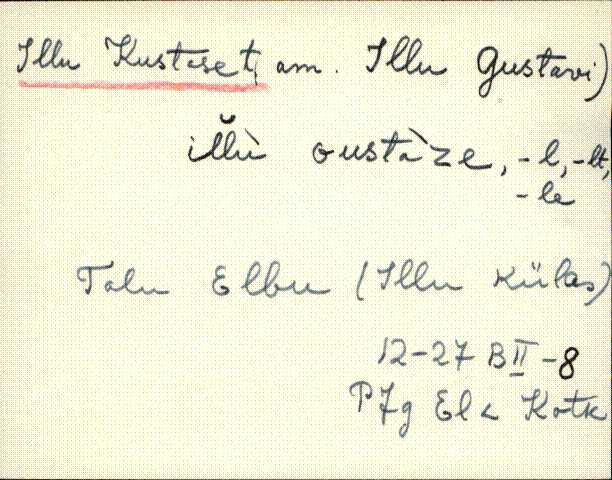 Illu Kustaset, am. Illu Gustavi)
illù oustàze, -l, -lt,
-le
Talu Elbu (Illu külas)
12-27 BII-8
P7g El < Kotk